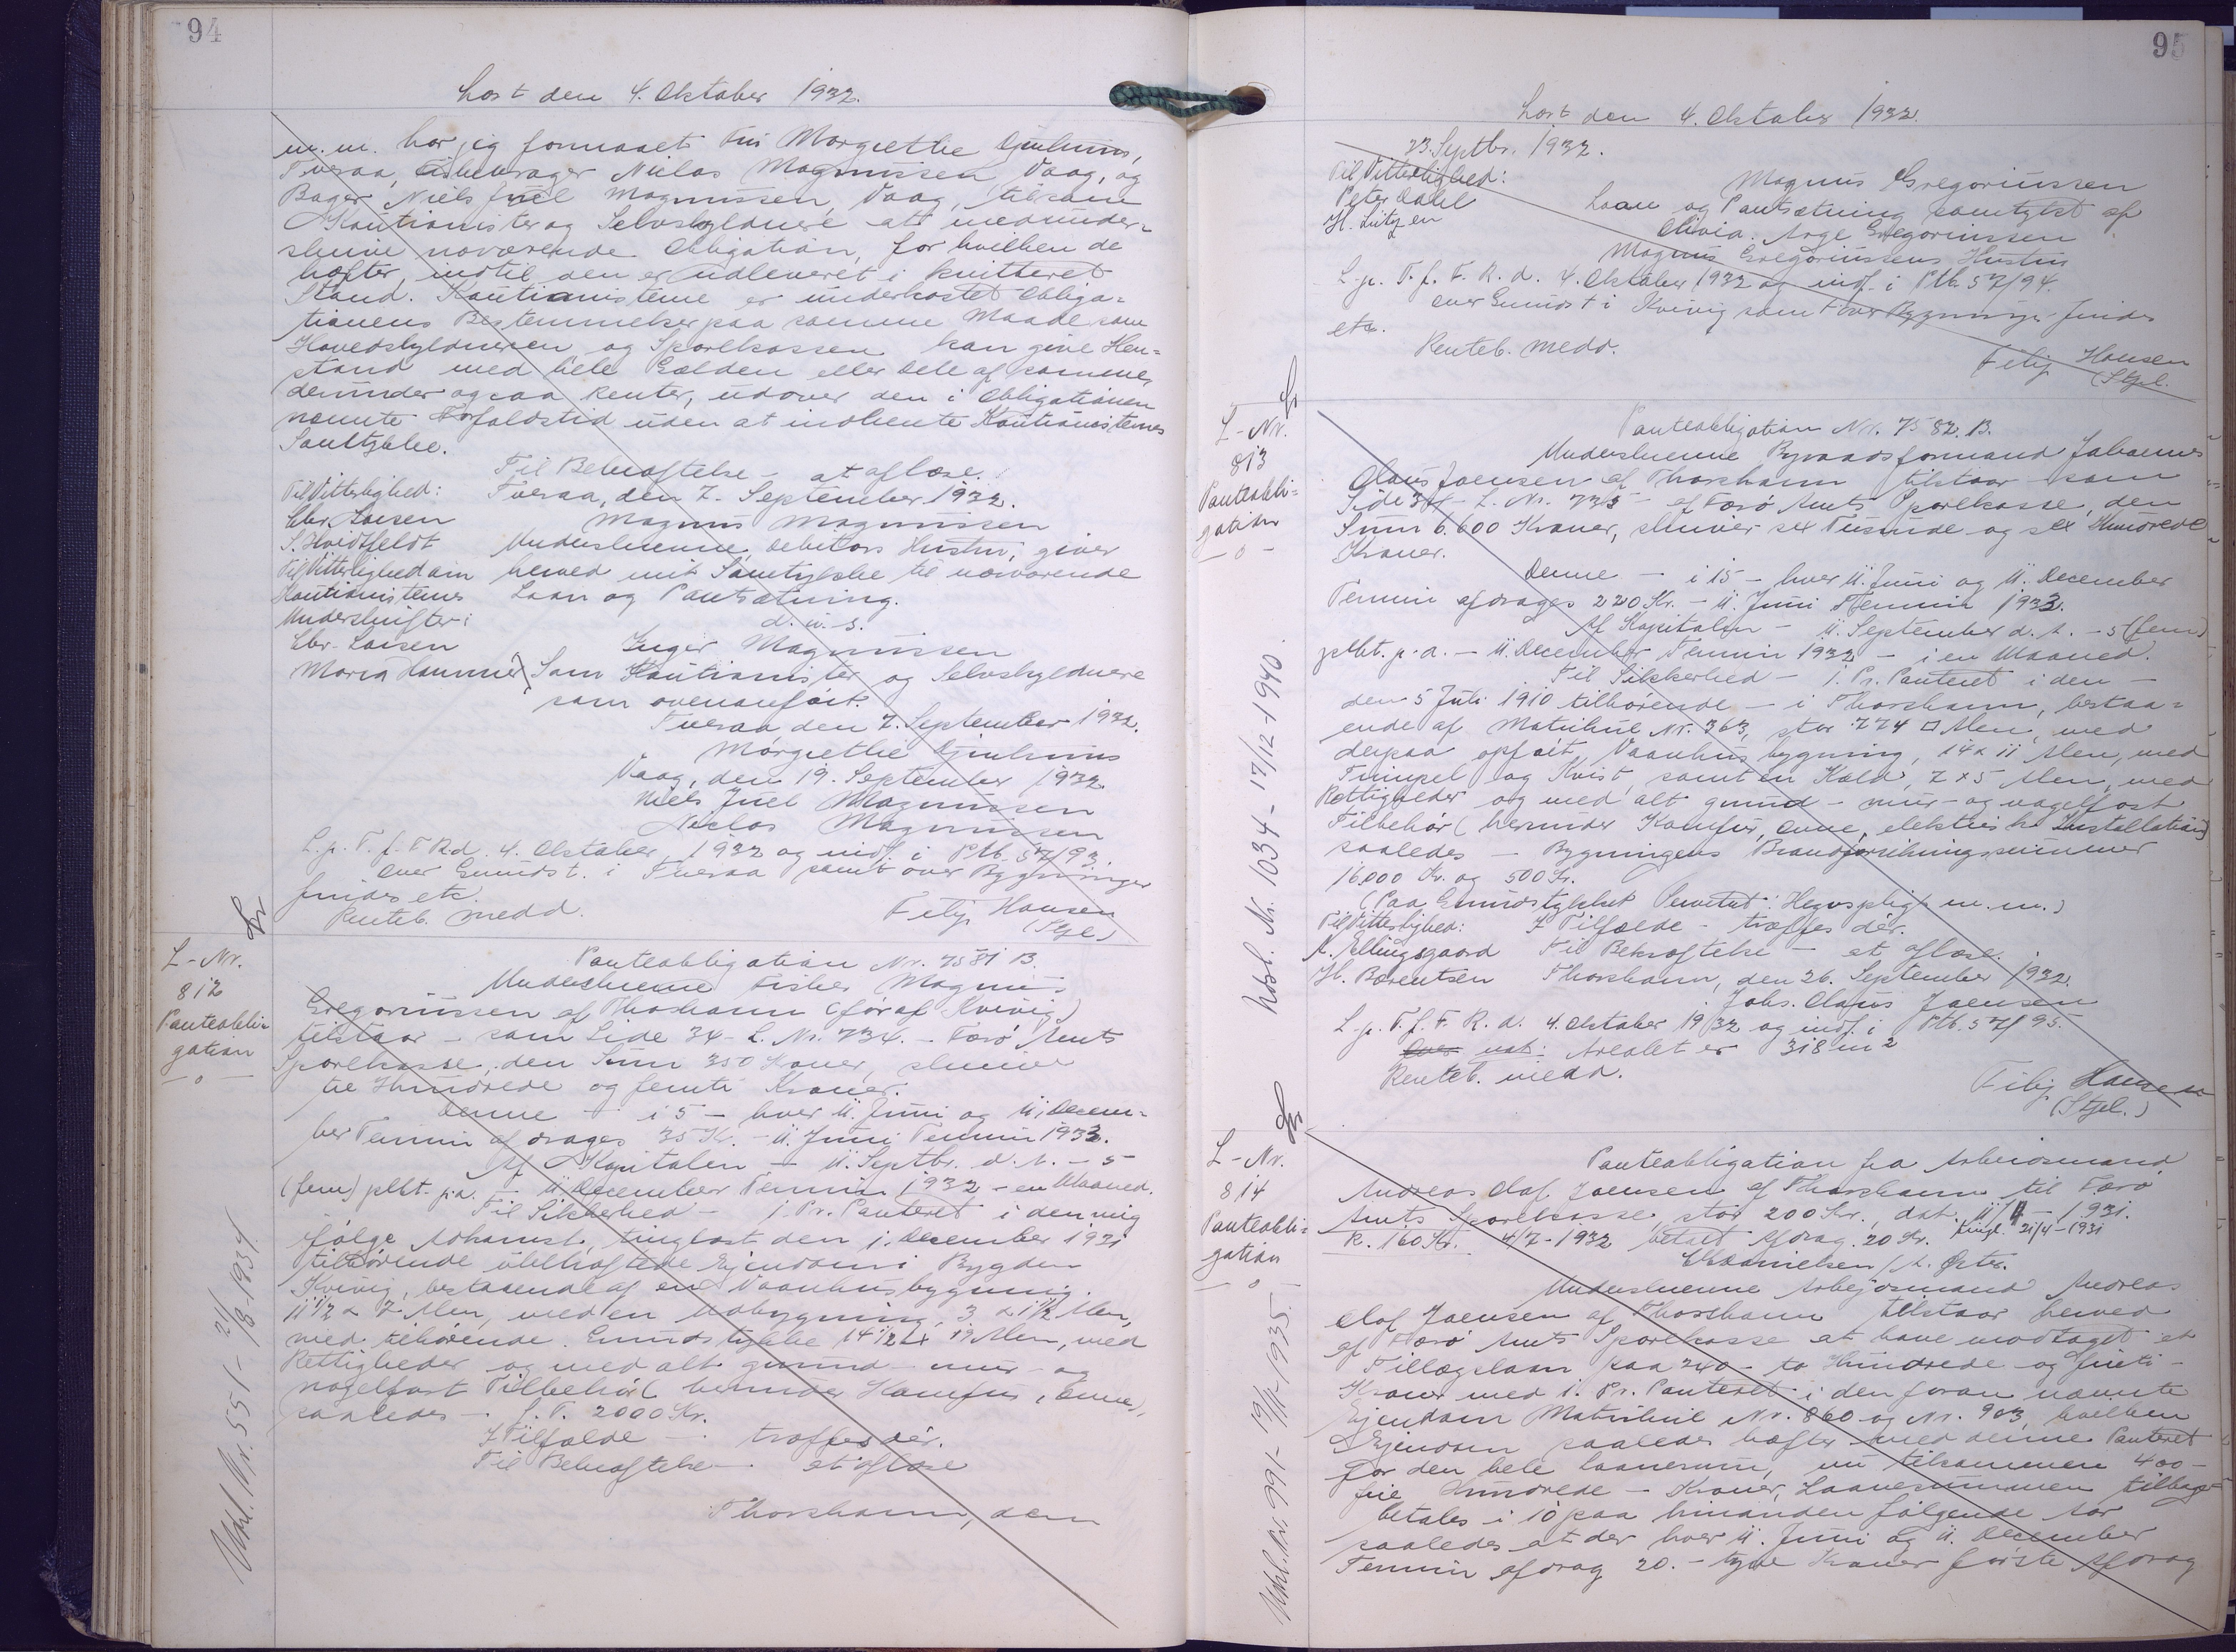 94
Læst den 4. Oktober 1932.
m.m. har jeg formaaet Fru Margrethe Gjulhuus,
Tveraa, Niclas Magnussen Vaag, og
Bager Niels Juel Magnussen, Vaag, til som
Kautionister og Selvskyldnere att medunder-
skrive nærværende Obligation, for hvilken de
hæfter, indtil den er udleveret i kvitteret
Stand. Kautionisterne er underkastet Obliga-
tionens Bestemmelser paa samme Maade som
Hovedskyldneren og Sparekassen kan give Hen-
stand med hele Gælden eller Dele af samme,
derunder ogsaa Renter, udover den i Obligationen
nævnte Forfaldstid uden at indhente Kautionisternes
Samtykke.
Til Bekræftelse - at aflæse.
Til Vitterlighed: Tveraa, den 7. September 1932.
Chr. Larsen Magnus Magnussen
S. Hvidtfeldt Undertegnede, Debitors Hustru, giver
Til Vitterlighed om herved mit Samtykke til nærværende
Kautionisternes Laan og Pantsætning.
Underskrifter: d. u. s.
Chr. Larsen Inger Magnussen
Maria Hammer Som Kautionister og Selvskyldnere
som ovenanført.
Tveraa den 7. September 1932.
Margrethe Gjulhuus
Vaag, den 19. September 1932.
Niels Juel Magnussen
Niclas Magnussen
L. p. T. f. F. R. d. 4. Oktober 1932 og indf. i Ptb. 57/93.
Over Grundst. i Tveraa samt over Bygninger
findes etc.
Renteb. medd. Filip Hansen
(Stpl.)
L-Nr.
812
Panteobli-
gation
- o -
Udsl. Nr. 551 - 21/8 1934.
Panteobligation Nr. 7581 B.
Underskrevne Fisker Magnus
Gregoriussen af Thorshavn (før af Kvivig)
tilstaar - som Side 34 - L. Nr. 734. - Færø Amts
Sparekasse, den Sum 350 Kroner, skriver
tre Hundrede og femti Kroner.
Denne - i 5 - hver 11. Juni og 11. Decem-
ber Termin afdrages 35 Kr. - 11. Juni Termin 1933.
Af Kapitalen - 11. Septbr. d. A. - 5
(fem) pCt. p.a. - 11. December Termin 1932 - en Maaned.
Til Sikkerhed - 1. Pr. Panteret i den mig
ifølge Adkomst, tinglæst den 1. December 1921
tilhørende ubehæftede Ejendom i Bygden
Kvivig, bestaaende af en Vaanhusbygning
11½ x 7 Alen, med en Udbygning, 3 x 1½ Alen,
med tilhørende Grundstykke 14½ x 19 Alen, med
Rettigheder og med alt grund- mur- og
nagelfast Tilbehør (herunder Komfur, Ovne),
saaledes - f. T. 2000 Kr.
I Tilfælde - træffes dér.
Til Bekræftelse - at aflæse
Thorshavn, den
95
Læst den 4. Oktober 1932.
23. Septbr. 1932.
Til Vitterlighed: Magnus Gregoriussen
Peter Dahl Laan og Pantsætning samtykket af
H. Lützen Olivia Arge Gregoriussen
Magnus Gregoriussens Hustru
L. p. T. f. F. R. d. 4. Oktober 1932 og indf. i Ptb. 57/94.
Over Grundst i Kvivig samt over Bygninger findes
etc.
Renteb. medd. Filip Hansen
(Stpl.
L-Nr.
813
Panteobli-
gation
- o -
Udsl. Nr. 1034 - 17/12-1940.
Panteobligation Nr. 7582. B.
Underskrevne Byraadsformand Johannes
Claus Joensen af Thorshavn tilstaar - som
Side 34 - L. Nr. 735 - af Færø Amts Sparekasse, den
Sum 6.600 Kroner, skriver sex Tusinde og sex Hundrede
Kroner.
Denne - i 15 - hver 11. Juni og 11. December
Termin afdrages 220 Kr. - 11. Juni Termin 1933.
Af Kapitalen - 11. September d. A. - 5 (fem)
pCt. p.a. - 11. December Termin 1932 - i en Maaned.
Til Sikkerhed - 1. Pr. Panteret i den -
den 5 Juli 1910 tilhørende - i Thorshavn, bestaa-
ende af Matrikul Nr. 363, stor 774 □ Alen, med
derpaa opført Vaanhusbygning, 14 x 11 Alen, med
Trempel og Kvist, samt en Kæld, 7 x 5 Alen, med
Rettigheder og med alt grund- mur- og nagelfast
Tilbehør (herunder Komfur, Ovne, elektrisk Installation)
saaledes - Bygningens Brandforsikringssummer
16,000 Kr. og 500 Kr.
(Paa Grundstykket Servitut: Hegnspligt m. m.)
Til Vitterlighed: I Tilfælde - træffes dér.
A. Ellingsgaard Til Bekræftelse - at aflæse.
H. Berentsen Thorshavn, den 26. September 1932.
Johs. Claus Joensen
L. p. T. f. F. R. d. 4. Oktober 1932 og indf. i Ptb. 57/95.
Over not: Arealet er 318 m2
Renteb. medd.
Filip Hansen
(Stpl.)
L-Nr.
814
Panteobli-
gation
- o -
Udsl. Nr. 991 - 19/11 1935.
Panteobligation fra Arbeidsmand
Andreas Olaf Joensen af Thorshavn til Færø
Amts Sparekasse, stor 200 Kr., dat. 11/4 - 1931.
R. 160 Kr. 4/7-1932 betalt Afdrag. 20 Kr. tingl. 21/4-1931
Danielsen / A. Øster.
Underskrevne Arbejdsmand Andreas
Olaf Joensen af Thorshavn tilstaar herved
af Færø Amts Sparekasse at have modtaget et
Tillægslaan paa 240 - to Hundrede og firti -
Kroner med 1. Pr. Panteret i den foran nævnte
Ejendom Matrikul Nr. 860 og Nr. 903, hvilken
Ejendom saaledes hæfter med denne Panteret
for den hele Laanesum, nu tilsammen 400 -
fire Hundrede - Kroner, Laanesummen tilbage-
betales i 10 paa hinanden følgende Aar
saaledes at der hver 11. Juni og 11. December
Termin afdrag 20. - tyve Kroner første Afdrag